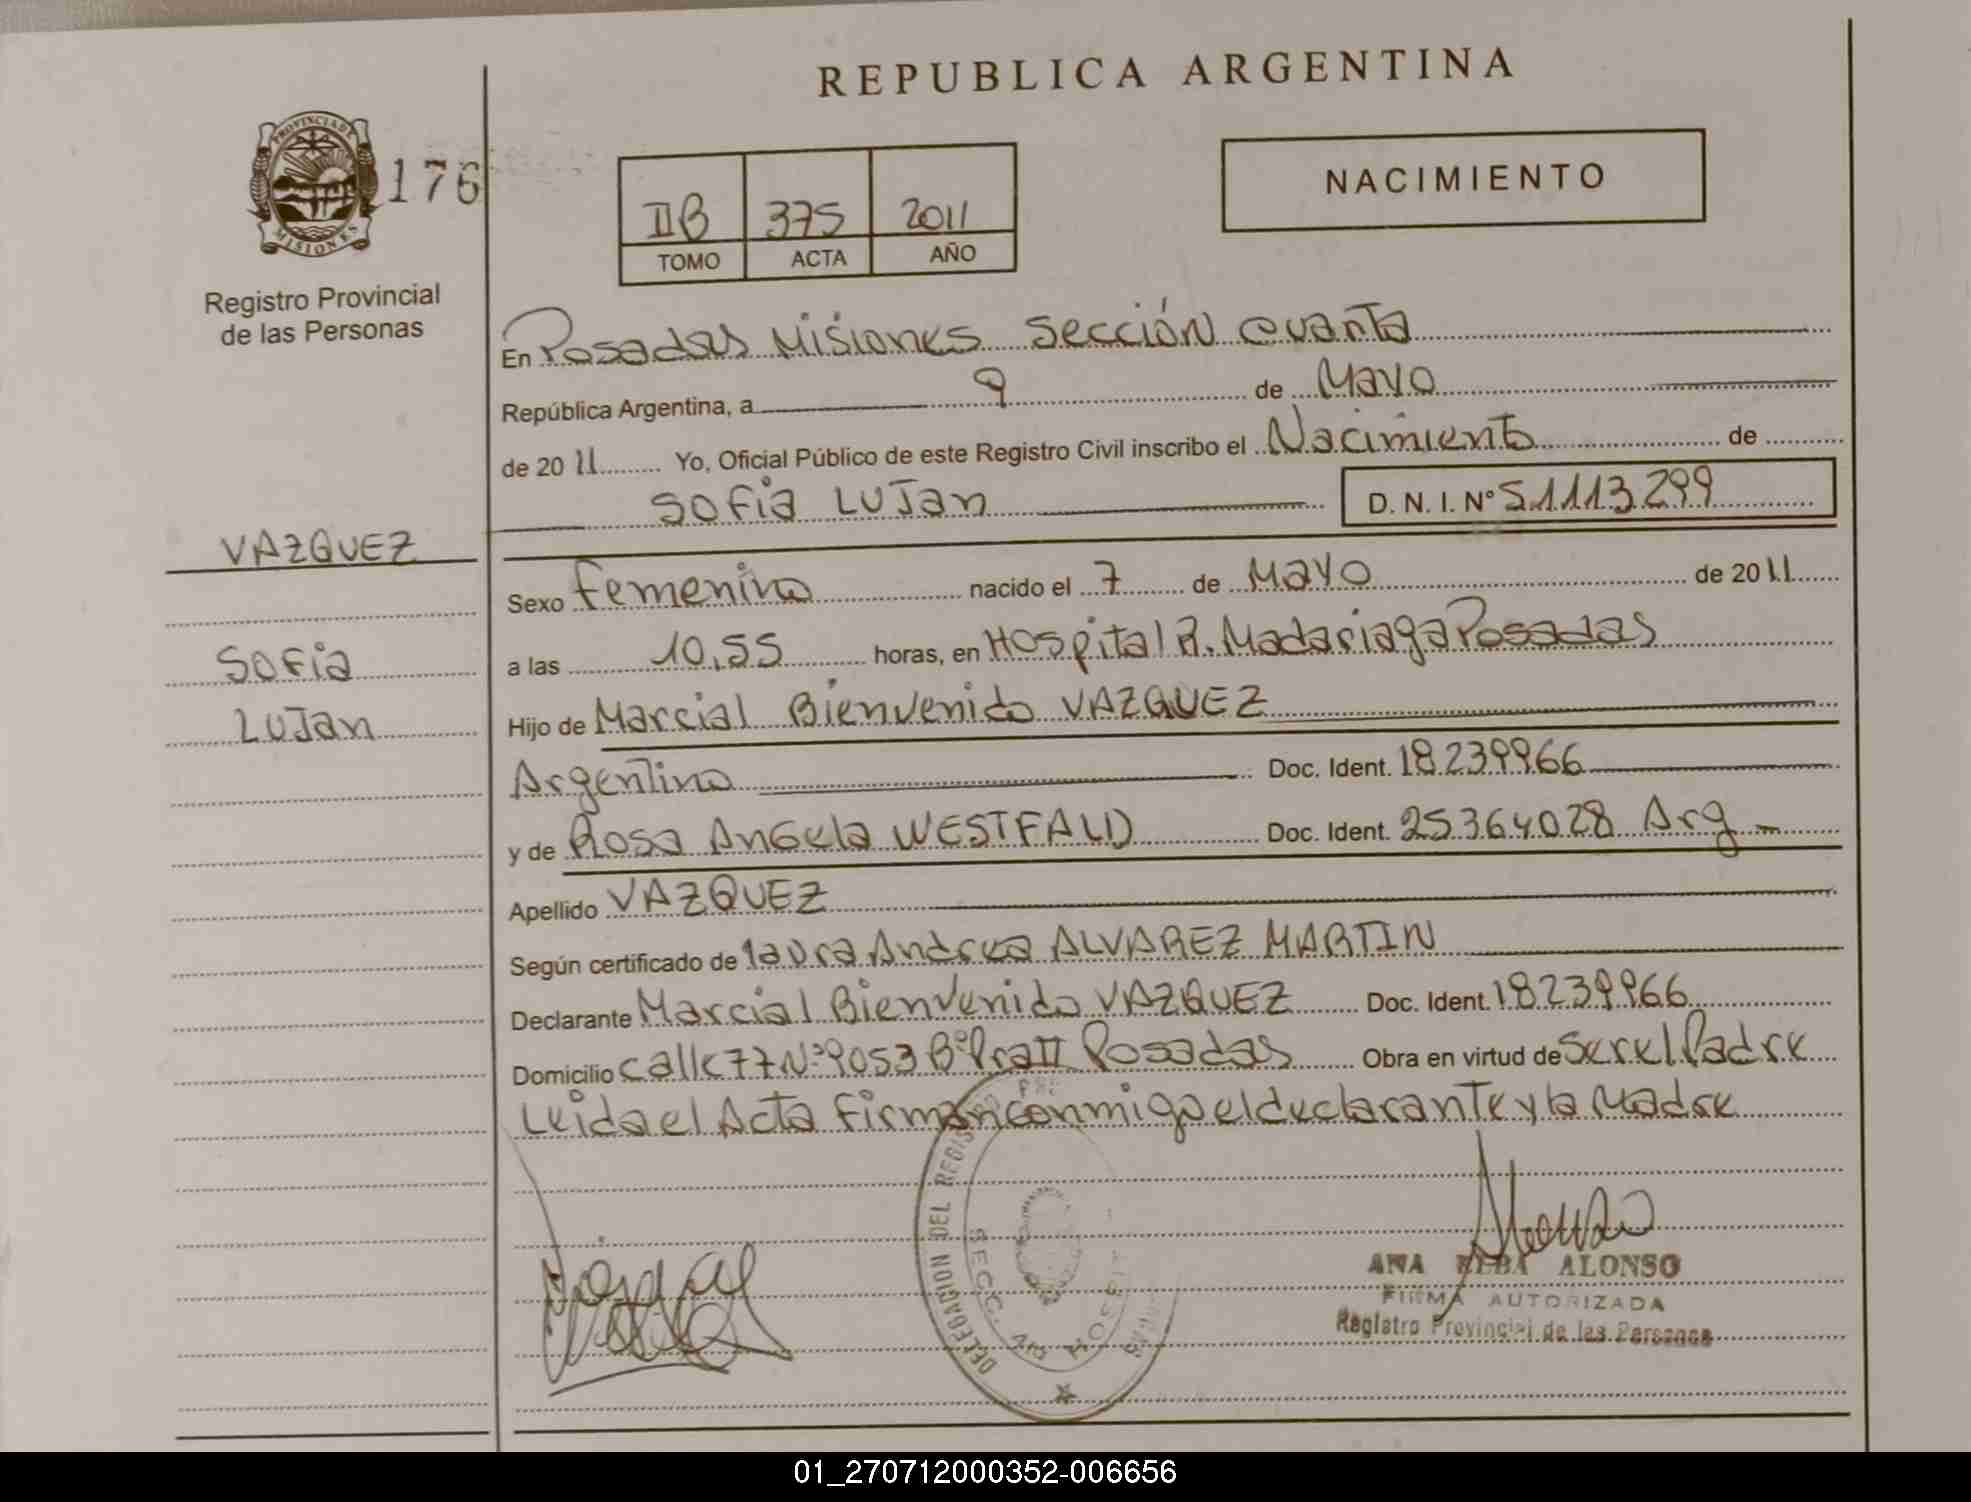 REPUBLICA ARGENTINA
PROVINCIA DE
MISIONES
176
Registro Provincial
de las Personas
II B 375 2011
TOMO ACTA AÑO
NACIMIENTO
En Posadas Misiones Sección cuarta
República Argentina, a 9 de Mayo
de 20 11 Yo, Oficial Público de este Registro Civil inscribo el Nacimiento de
Sofia Lujan D. N. I. Nº 51113299
VAZQUEZ
Sofia
Lujan
Sexo Femenino nacido el 7 de Mayo de 20 11
a las 10,55 horas, en Hospital R. Madariaga Posadas
Hijo de Marcial Bienvenido VAZQUEZ
Argentino Doc. Ident. 18239966
y de Rosa Angela WESTFALD Doc. Ident. 25364028 Arg
Apellido VAZQUEZ
Según certificado de laura Andrea ALVAREZ MARTIN
Declarante Marcial Bienvenido VAZQUEZ Doc. Ident. 18239966
Domicilio calle 77 Nº 9053 Bº Pratt Posadas Obra en virtud de Ser el Padre
Leida el Acta Firman conmigo el declarante y la Madre
DELEGACION DEL REGISTRO
SECC.
ANA ELBA ALONSO
FIRMA AUTORIZADA
Registro Provincial de las Personas
01_270712000352-006656